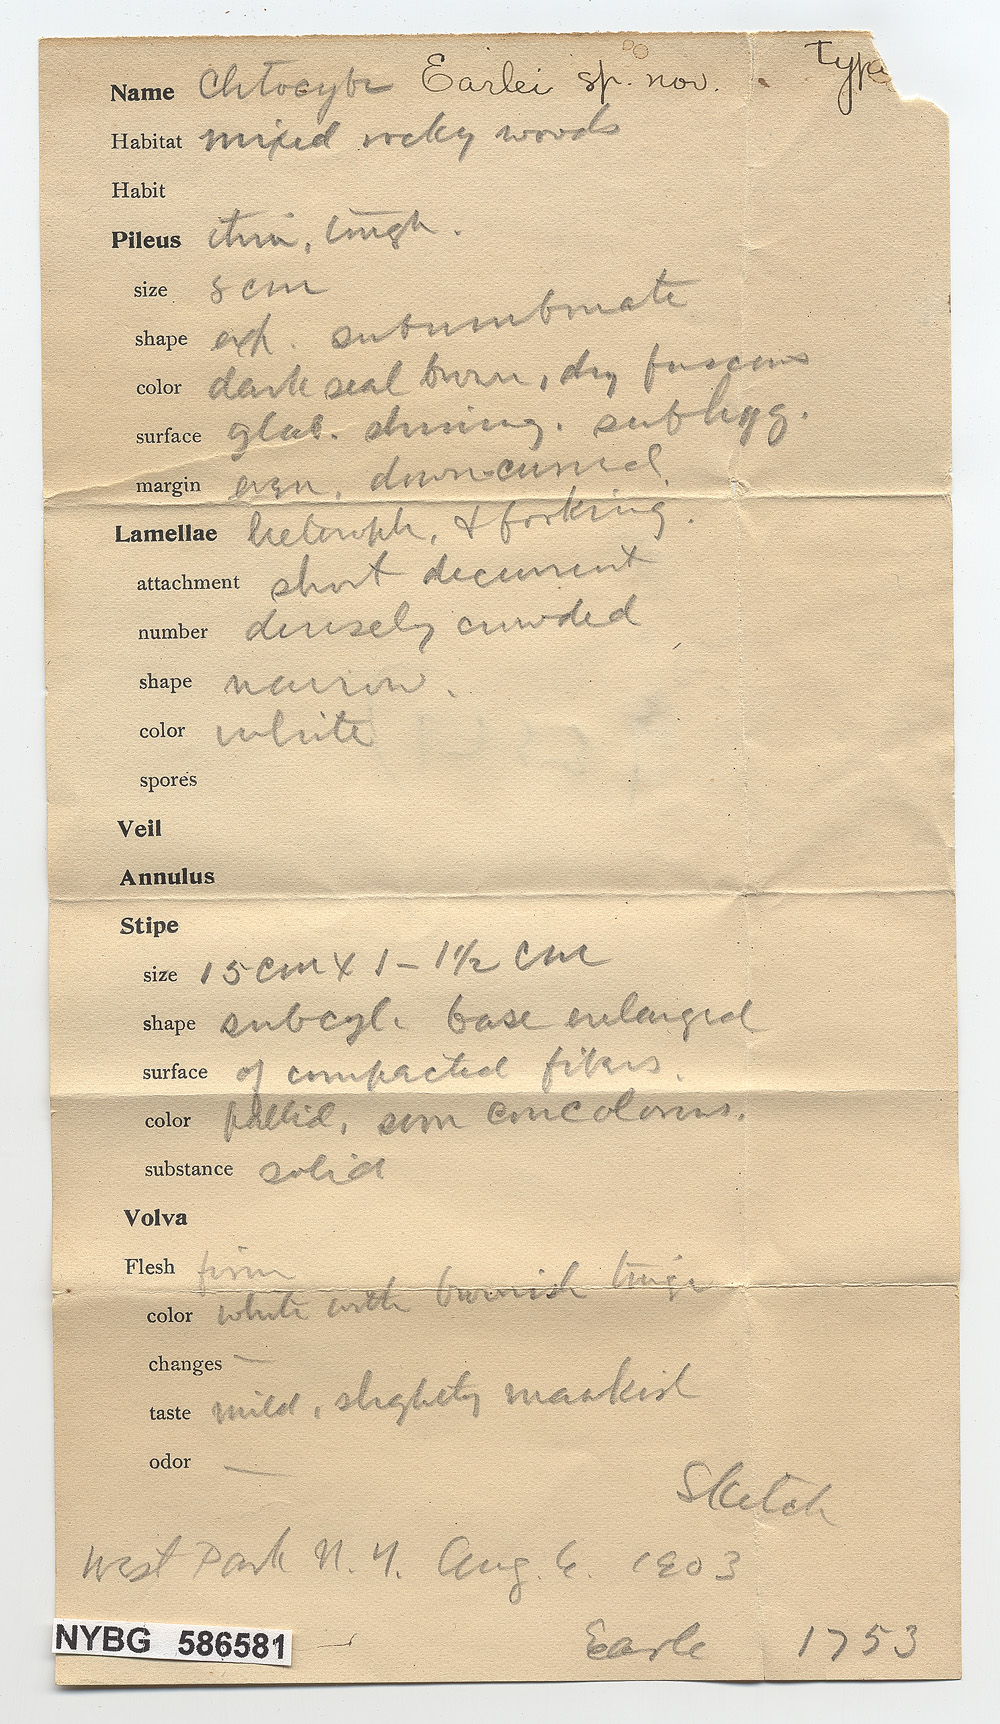 Name Clitocybe Earlei sp. nov. type
Habitat mixed rocky woods
Habit
Pileus thin, tough.
size 8 cm
shape exp. subumbonate
color dark seal brown, dry fuscous
surface glab. shining. subhyg.
margin even, down-curved
Lamellae heteroph. & forking.
attachment short decurrent
number densely crowded
shape narrow.
color white
spores
Veil
Annulus
Stipe
size 15 cm X 1-1½ cm
shape subcyl. base enlarged
surface of compacted fibers.
color pallid, som concolorous.
substance solid
Volva
Flesh firm
color white with brownish tinge
changes —
taste mild, slightly mawkish
odor —
Sketch
West Park N. Y. Aug. 6. 1903
NYBG 586581
Earle 1753